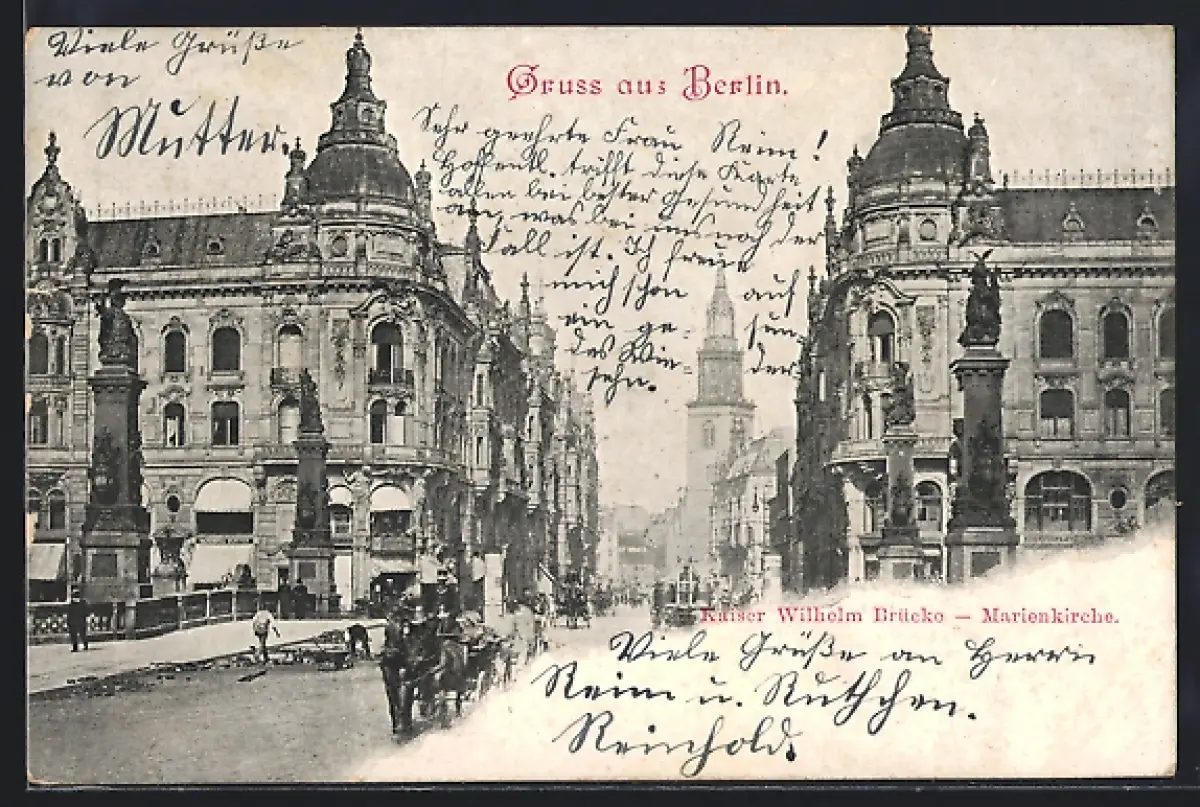 Viele Grüße
von
Mutter.
Gruss aus Berlin.
Sehr geehrte Frau Reim!
Hoffentl. trifft diese Karte
allen bei bester Gesundheit
an, was bei uns noch der
Fall ist. Ich freue
mich schon auf
ein ge- sun
des Wie- der
sehn.
Kaiser Wilhelm Brücke — Marienkirche.
Viele Grüße an Herrn
Reim u. Ruthchen.
Reinhold.